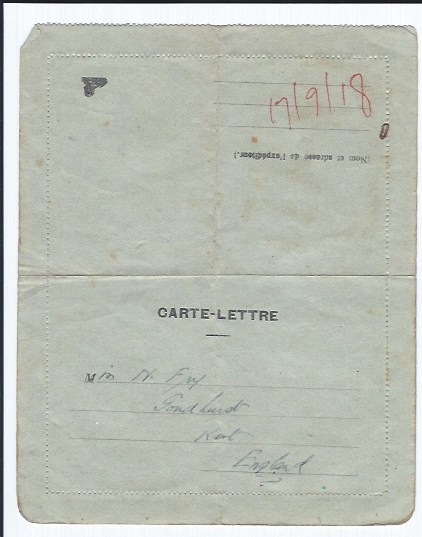 17/9/18
(Nom et adresse de l'expéditeur.)
CARTE-LETTRE
Miss N.
Goudhurst
Kent
England